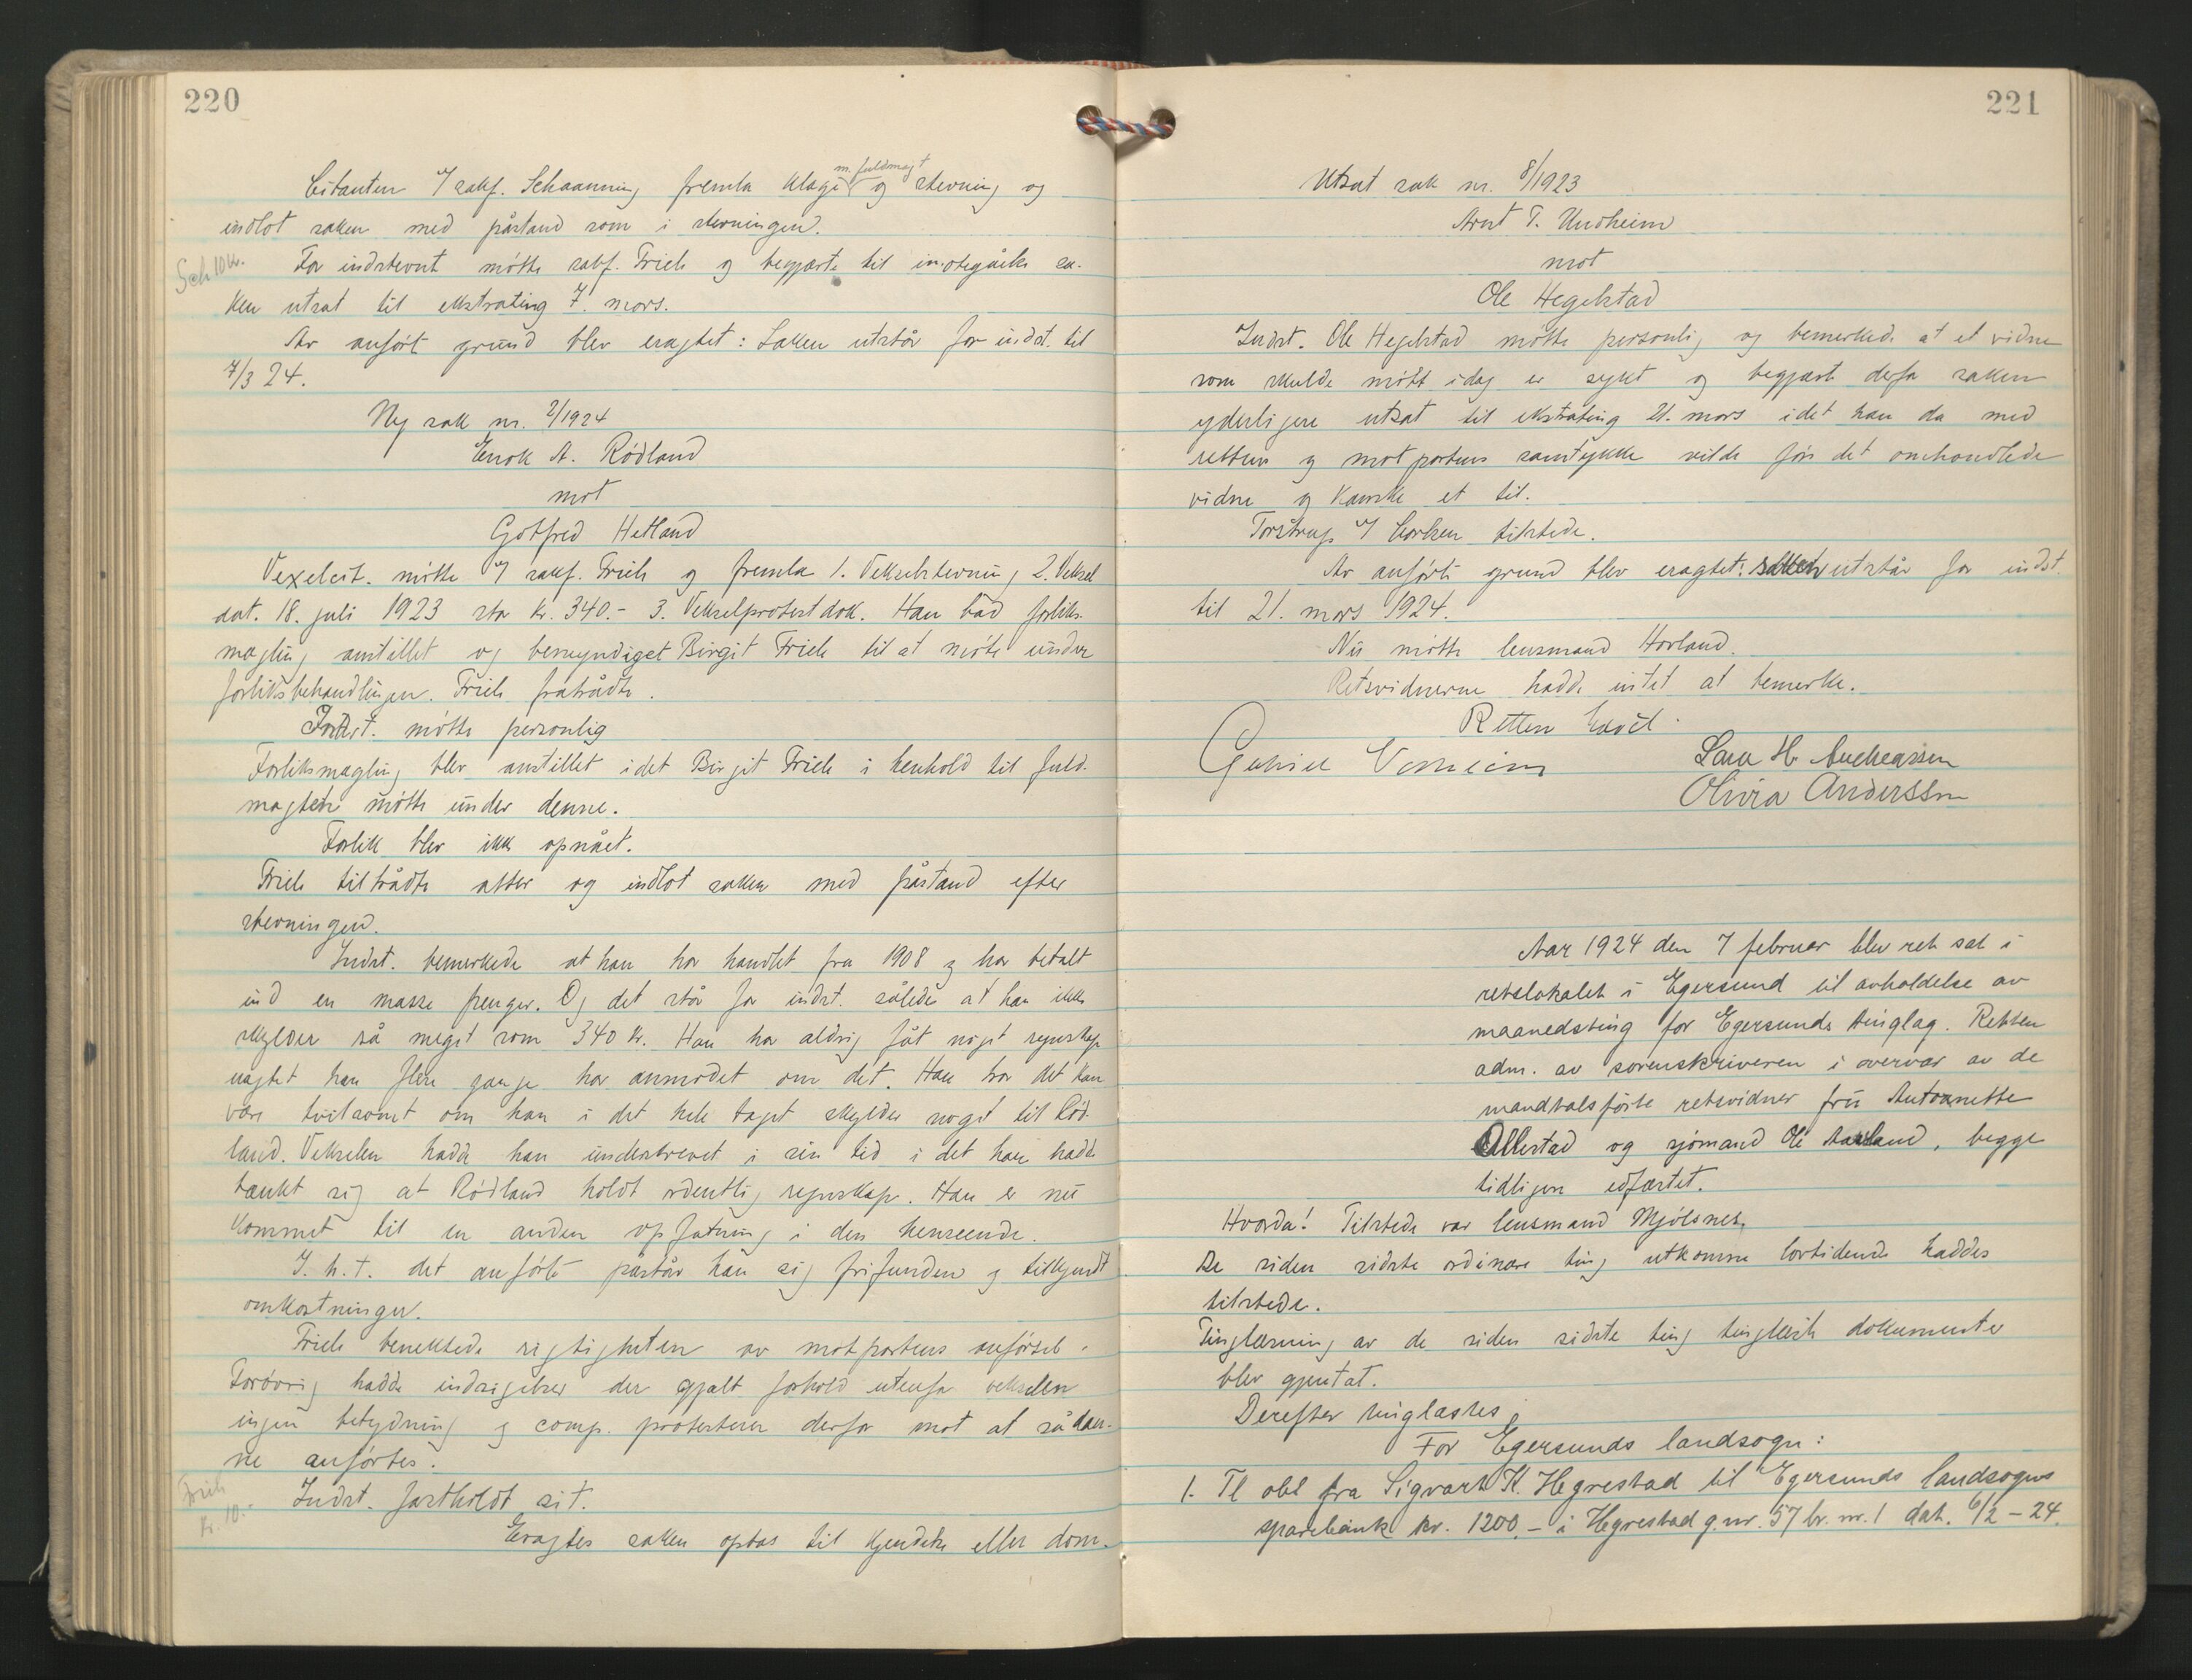 220
m. fuldmagt
Citanten v/ sakf. Schaanning fremla klage og stevning og
indlot saken med påstand som i stevningen.
Sch 10 kr.
For indstevnt møtte sakf. Friele og begjærte til imøtegåelse sa-
ken utsat til ekstrating 7. mars.
Av anført grund blev eragtet: Saken utstår for indst. til
7/3 24.
Ny sak nr. 2/1924
Enok A. Rödland
mot
Gotfred Hetland
Vexelcit. møtte v/ sakf. Friele og fremla 1. Vekselstevning 2. Veksel
dat. 18. juli 1923 stor kr. 340.- 3. Vekselprotestdok. Han bad forliks-
mægling anstillet og bemyndiget Birgit Friele til at møte under
forliksbehandlingen. Friele fratrådte.
Indst. møtte personlig
Forliksmægling blev anstillet idet Birgit Friele i henhold til fuld-
magten møtte under denne.
Forlik blev ikke opnået.
Friele tiltrådte atter og indlot saken med påstand efter
stevningen.
Indst. bemerkede at han har handlet fra 1908 og har betalt
ind en masse penger. Og det står for indst. således at han ikke
skylder så meget som 340 kr. Han har aldrig fåt noget regnskap
uagtet han flere gange har anmodet om det. Han tror det kan
være tvilsomt om han i det hele taget skylder noget til Röd-
land. Vekselen hadde han underskrevet i sin tid i det han hadde
tænkt sig at Rödland holdt ordentlig regnskap. Han er nu
kommet til en anden opfatning i den henseende.
I. h. t. det anførte påstår han sig frifunden og tilkjendt
omkostninger.
Friele benektede rigtigheten av motpartens anførsel.
Forøvrig hadde indsigelser der gjalt forhold utenfor vekselen
ingen betydning og comp. protesterer derfor mot at sådan-
ne anførtes.
Friele
kr. 10.-
Indst. fastholdt sit.
Eragtes saken optas til kjendelse eller dom.
221
Utsat sak nr. 8/1923
Arnt T. Undheim
mot
Ole Hegelstad
Indst. Ole Hegelstad møtte personlig og bemerkede at et vidne
som skulde møtt idag er sykt og begjært derfor saken
yderligere utsat til ekstrating 21. mars idet han da med
rettens og motpartens samtykke vilde føre det omhandlede
vidne og kanske et til.
Torstrup v/ Carlsen tilstede.
Av anførte grund blev eragtet: saken utstår for indst.
til 21. mars 1924.
Nu møtte lensmand Havland.
Retsvidnerne hadde intet at bemerke.
Retten hævet.
Lara H. Andreassen
Olivia Anderssen
Aar 1924 den 7 februar blev ret sat i
retslokalet i Egersund til avholdelse av
maanedsting for Egersunds tinglag. Retten
adm. av sorenskriveren i overvær av de
mandtalsførte retsvidner frü Antoanette
Ollestad og sjømand Ole Aarland, begge
tidligere edfæstet.
Hvorda! Tilstede var lensmand Mjølsnes.
De siden sidste ordinære ting utkomne lovtidende haddes
tilstede.
Tinglæsning av de siden sidste ting tinglæste dokumenter
blev gjentat.
Derefter tinglæstes:
For Egersunds landsogn:
1. Tl obl fra Sigvart K. Hegrestad til Egersunds landsogns
sparebank kr. 1200.- i Hegrestad g.nr. 57 br. nr. 1 dat. 6/2 - 24.